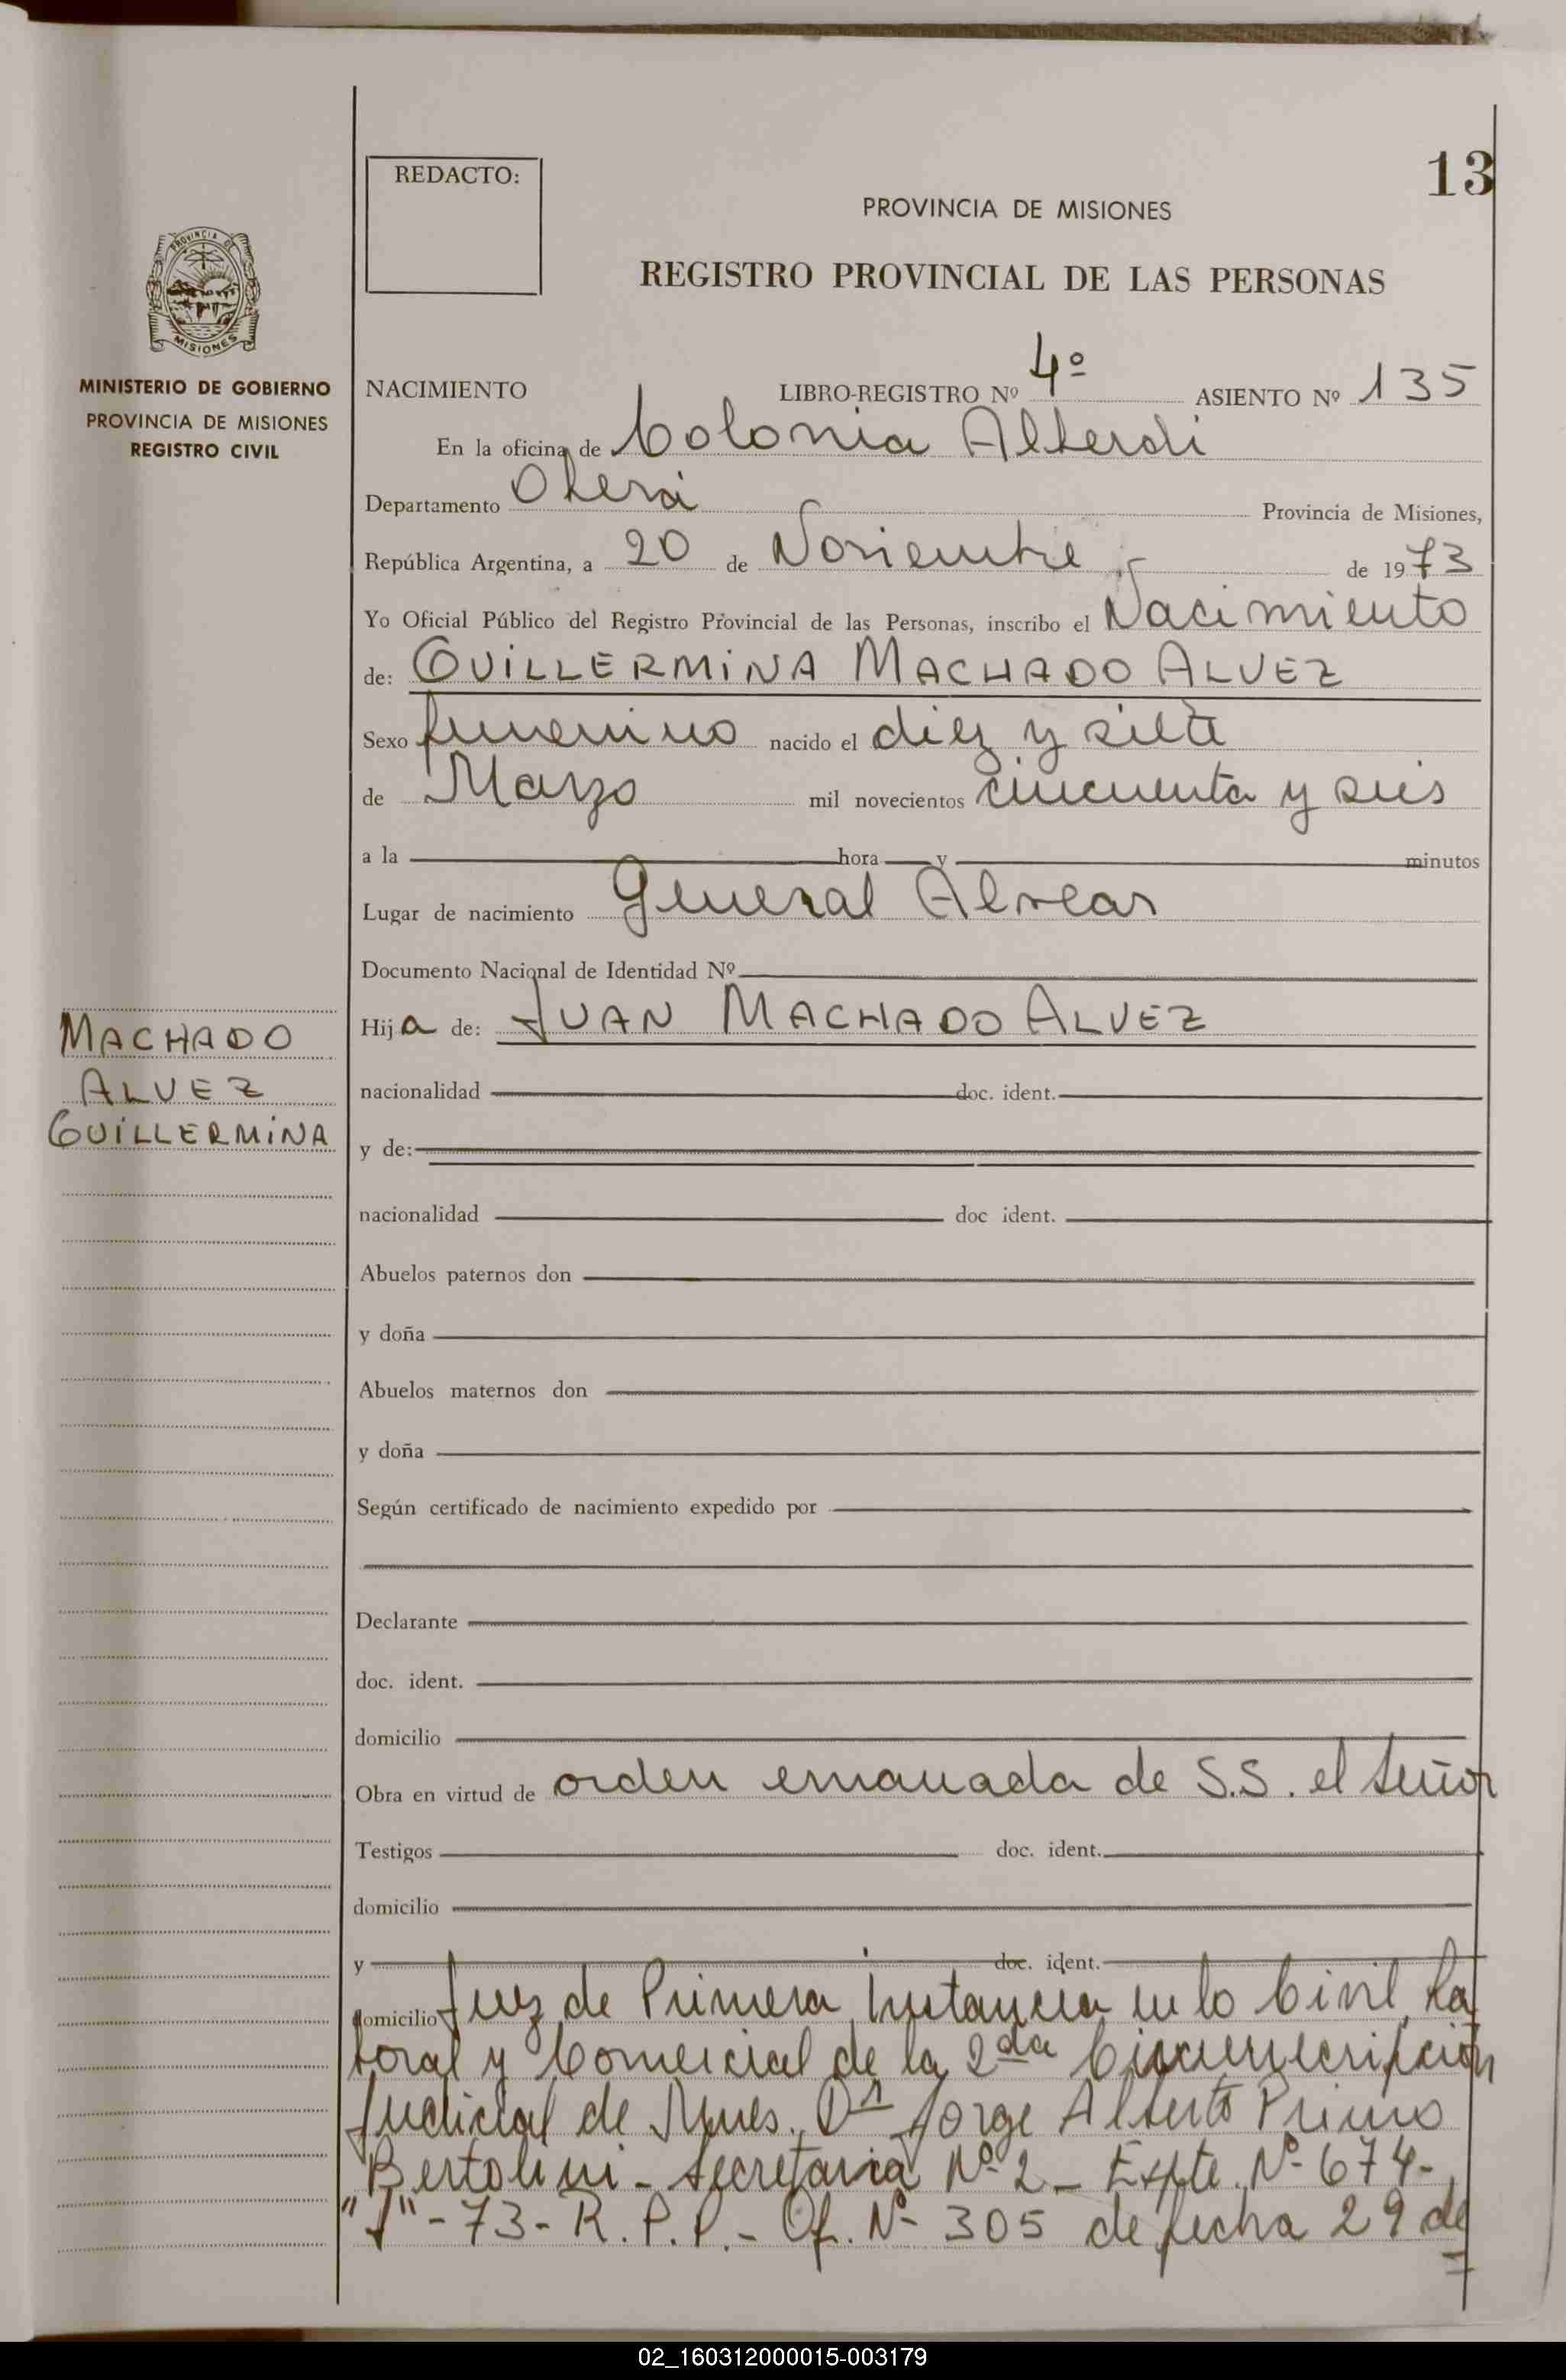 13
REDACTO:
PROVINCIA DE MISIONES
REGISTRO PROVINCIAL DE LAS PERSONAS
PROVINCIA DE
MISIONES
MINISTERIO DE GOBIERNO
PROVINCIA DE MISIONES
REGISTRO CIVIL
NACIMIENTO LIBRO-REGISTRO Nº 4º ASIENTO Nº 135
En la oficina de Colonia Alberdi
Departamento Oberá Provincia de Misiones,
República Argentina, a 20 de Noviembre de 1973
Yo Oficial Público del Registro Provincial de las Personas, inscribo el Nacimiento
de: GUILLERMINA MACHADO ALVEZ
Sexo femenino nacido el diez y siete
de Marzo mil novecientos cincuenta y seis
a la hora y minutos
Lugar de nacimiento General Alvear
Documento Nacional de Identidad Nº
MACHADO
ALVEZ
GUILLERMINA
Hija de: JUAN MACHADO ALVEZ
nacionalidad doc. ident.
y de:
nacionalidad doc ident.
Abuelos paternos don
y doña
Abuelos maternos don
y doña
Según certificado de nacimiento expedido por
Declarante
doc. ident.
domicilio
Obra en virtud de orden emanada de S.S. el Señor
Testigos doc. ident.
domicilio
y doc. ident.
domicilio Juez de Primera Instancia en lo Civil, La
boral y Comercial de la 2da Circunscripción
Judicial de Mnes. Dr Jorge Alberto Primo
Bertolini - Secretaría Nº 2 - Expte. Nº 674-
"J"-73- R.P.P. - Of. Nº 305 de fecha 29 de
02_160312000015-003179